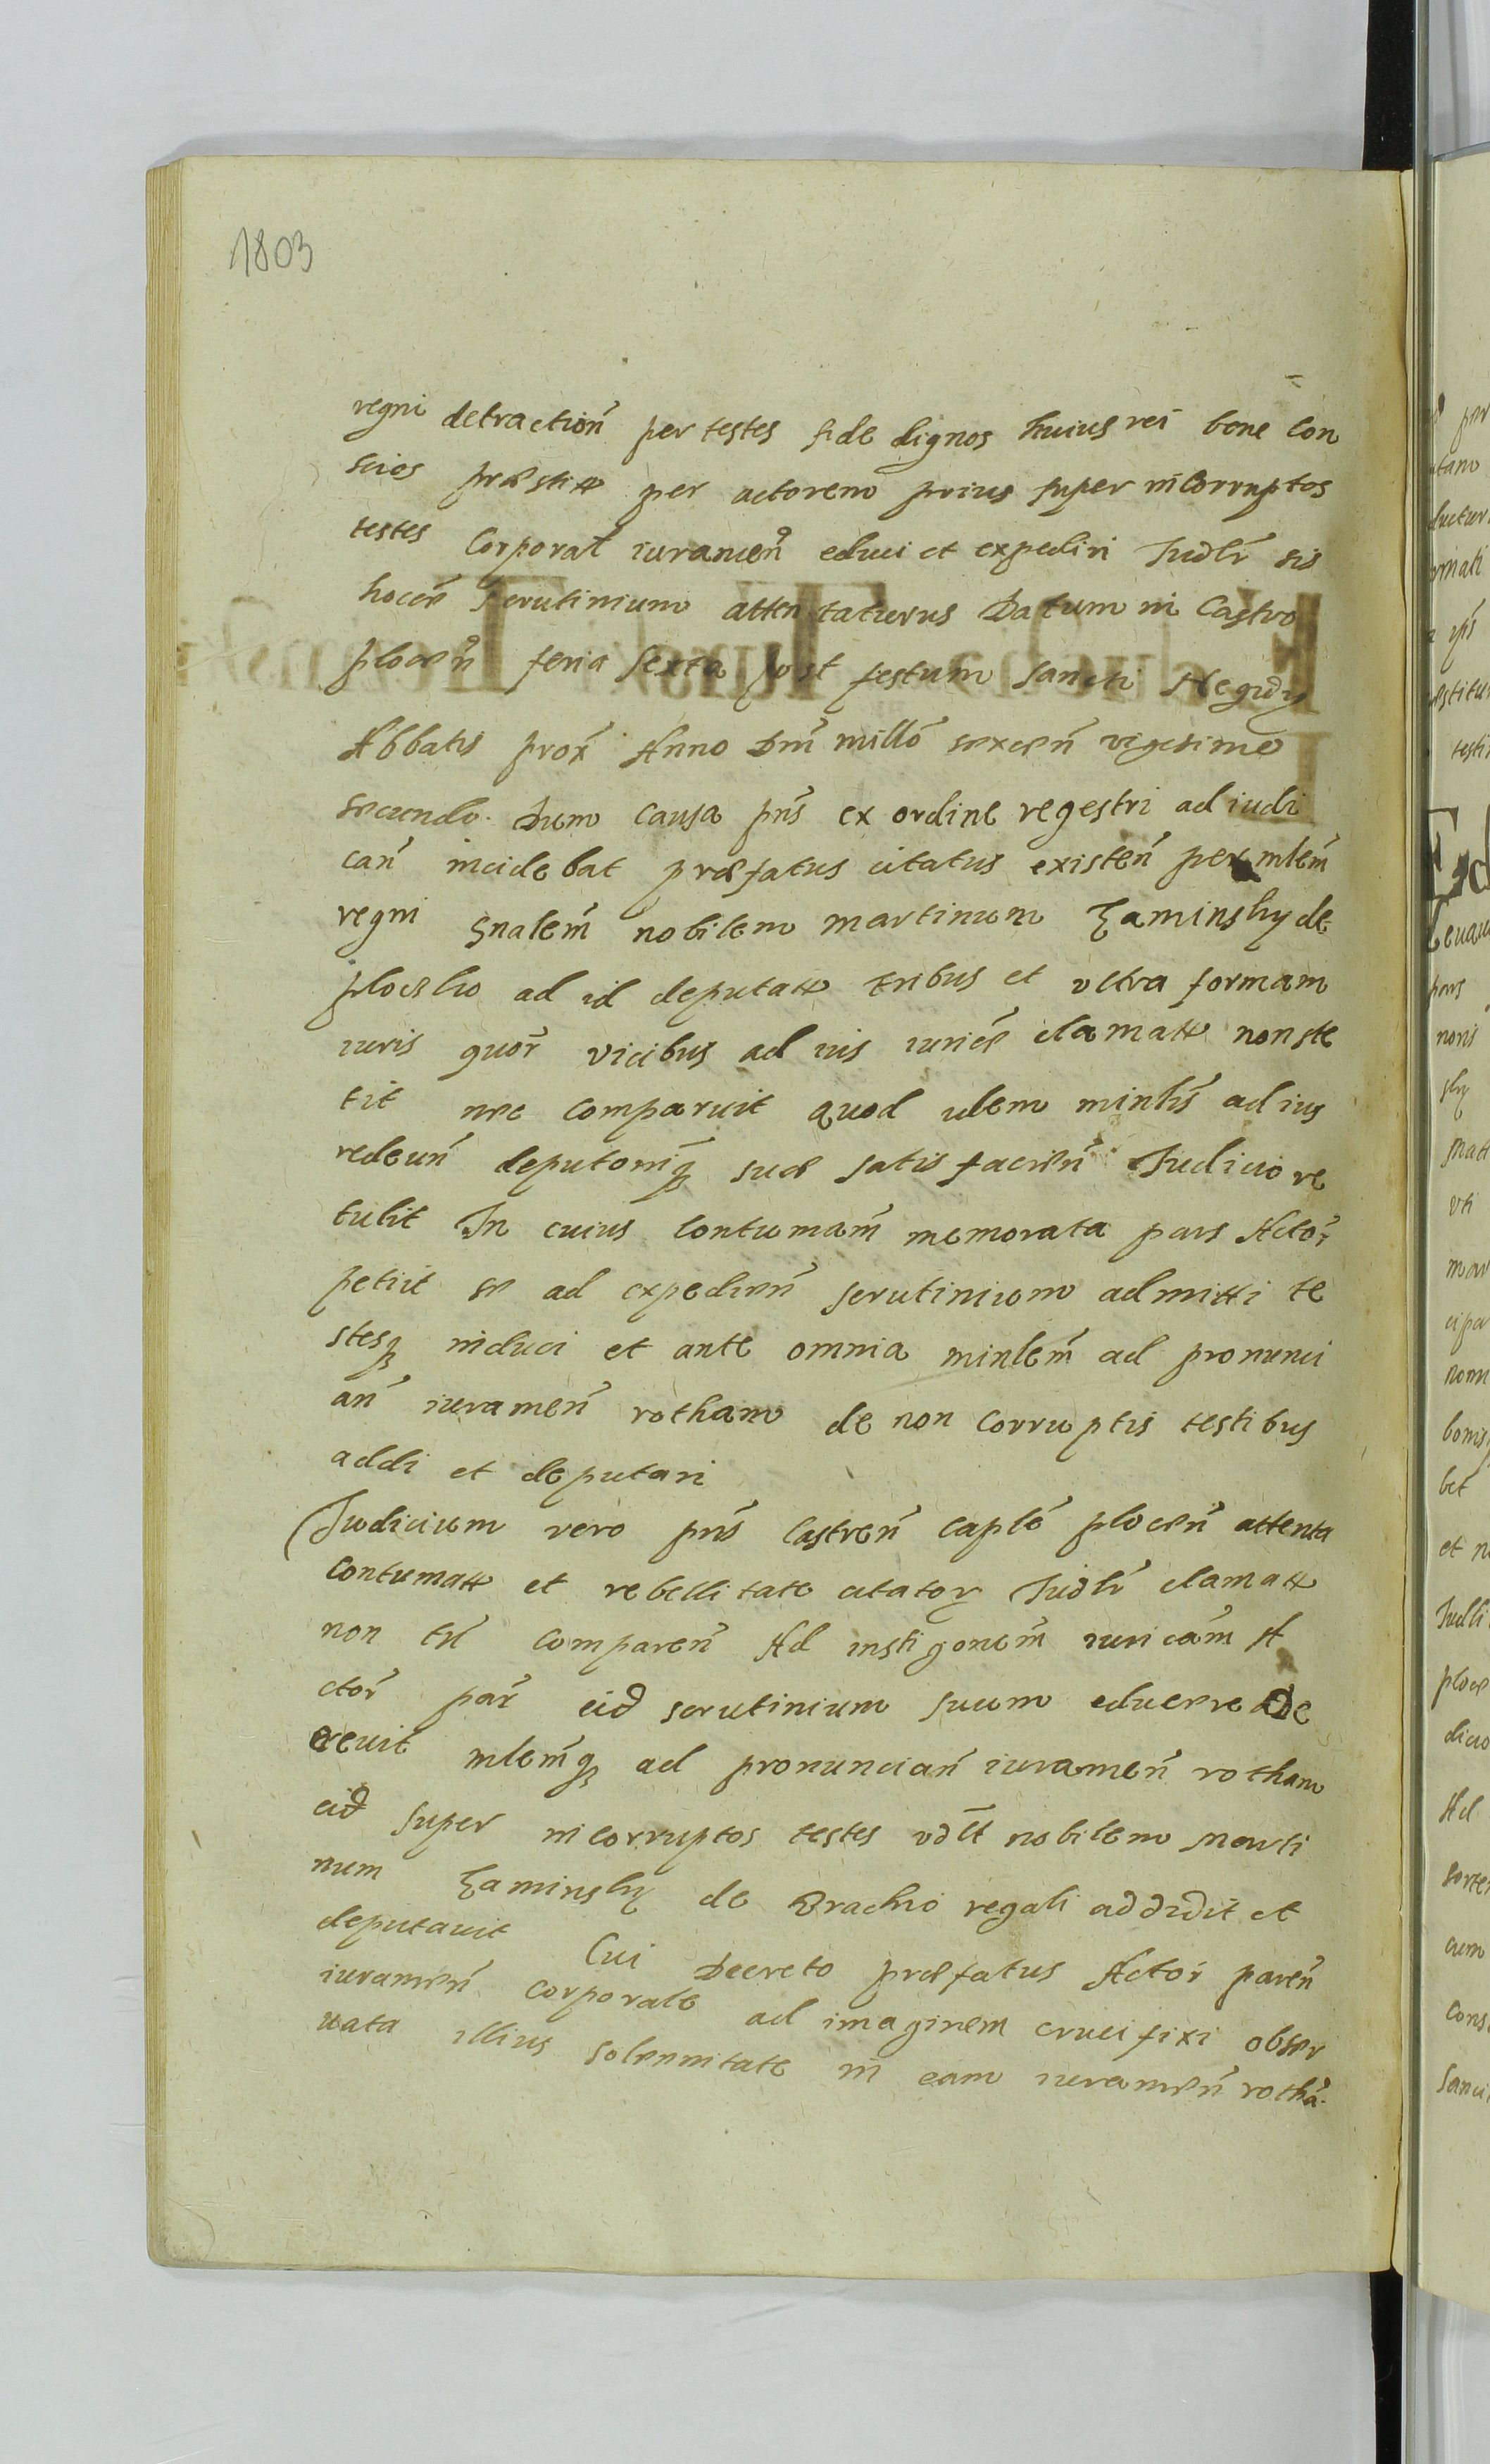 1803
regni detraction̄ per testes fide dignos huius rei bene con
scios præstitt per actorem prius super incorruptos
testes corporal iuramen̄ educi et expediri Judlr̄ sis
hocce scrutinium attentaturus Datum in Castro
plocen̄ feria sexta post festum sancti Aegidy
Abbatis prox̄ Anno Dnī millō sexcen̄ vigesimo
secundo. Dum causa pn̄s ex ordine regestri ad iudi
can̄ incidebat præfatus citatus existen̄ per mlem̄
regni gnalem̄ nobilem martinum Zaminsky de
plocsko ad id deputatt tribus et vltra formam
iuris quor̄ vicibus ad ius iurice clamatt non ste
tit nec comparuit quod idem minlis̄ ad ius
redeun̄ deputoniq̨ suæ satisfacien̄ Judicio re
tulit In cuius contumam̄ memorata pars Actor̄
petiit se ad expedien̄ scrutinium admitti te
stesq̨ induci et ante omnia minlem̄ ad pronunci
an̄ iuramen̄ rotham de non corruptis testibus
addi et deputari
Judicium vero pn̄s castren̄ caplē plocen̄ attenta
contumatt et rebellitate citator Judlr̄ clamatt
non tn̄ comparen̄ Ad instigonem̄ iuricam̄ A
ctor̄ par̄ eid scrutinium suum educere de
crevit mlem̄q̨ ad pronuncian̄ iuramen̄ rotham
eid super incorruptos testes vdlt nobilem marti
num Zaminsky de Brachio regali addidit et
deputauit Cui Decreto præfatus Actor paren̄
iuramen̄ corporale ad imaginem crucifixi obser
uata illius solennitate in eam iuramen̄ rothā.